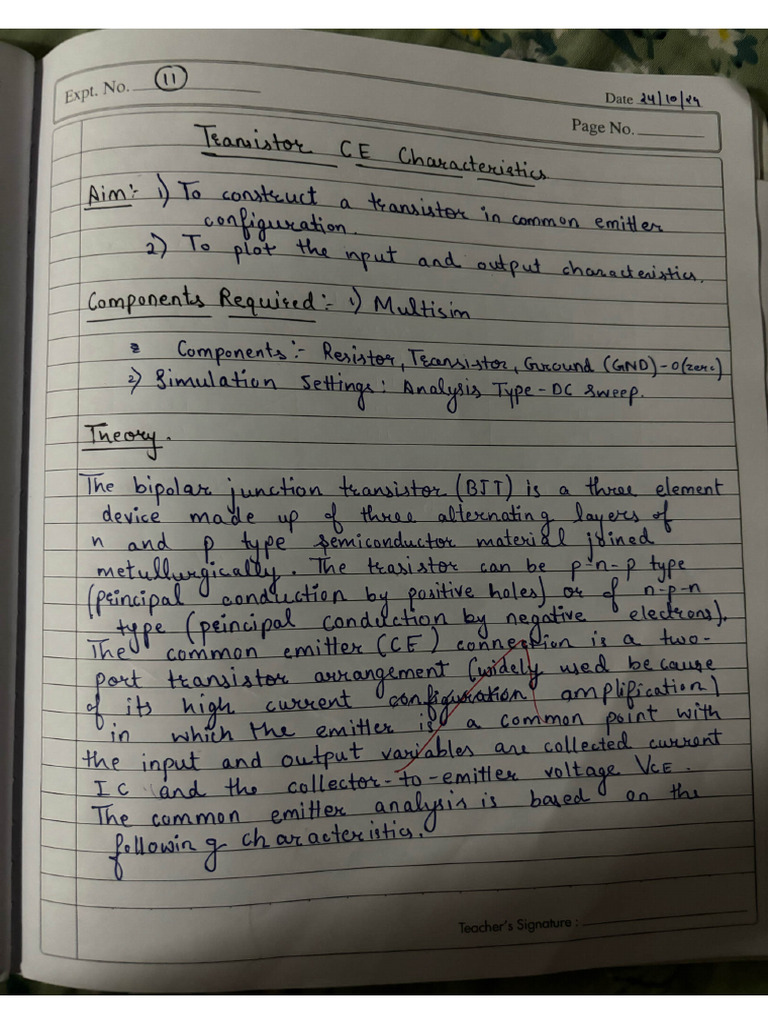 Expt. No. 11
Date 24/10/24
Page No.
Transistor CE Characteristics
Aim:- 1) To construct a transistor in common emitter
configuration.
2) To plot the input and output characteristics.
Components Required:- 1) Multisim
Components:- Resistor, Transistor, Ground (GND) - 0(zero)
2) Simulation Settings: Analysis Type - DC Sweep.
Theory.
The bipolar junction transistor (BJT) is a three element
device made up of three alternating layers of
n and p type semiconductor material joined
metullurgically. The trasistor can be p-n-p type
(principal conduction by positive holes) or of n-p-n
type (principal conduction by negative electrons).
The common emitter (CE) connection is a two-
port transistor arrangement (widely used because
of its high current configuration amplification)
in which the emitter is a common point with
the input and output variables are collected current
IC and the collector-to-emitter voltage VCE.
The common emitter analysis is based on the
following characteristics.
Teacher's Signature :